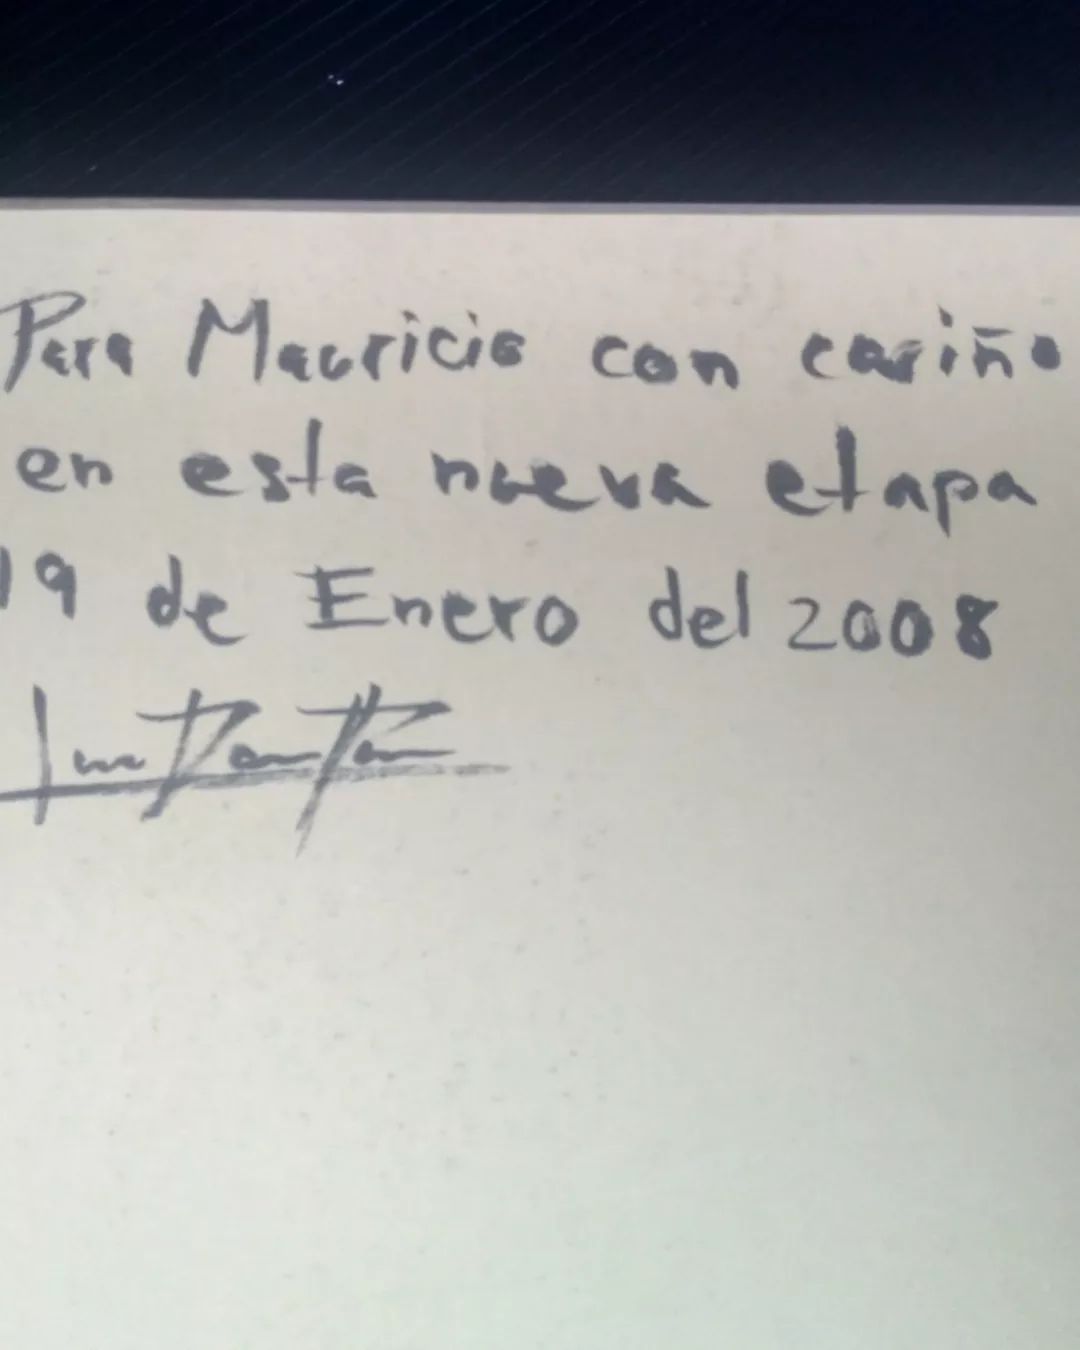 Para Mauricio con cariño
en esta nueva etapa
19 de Enero del 2008